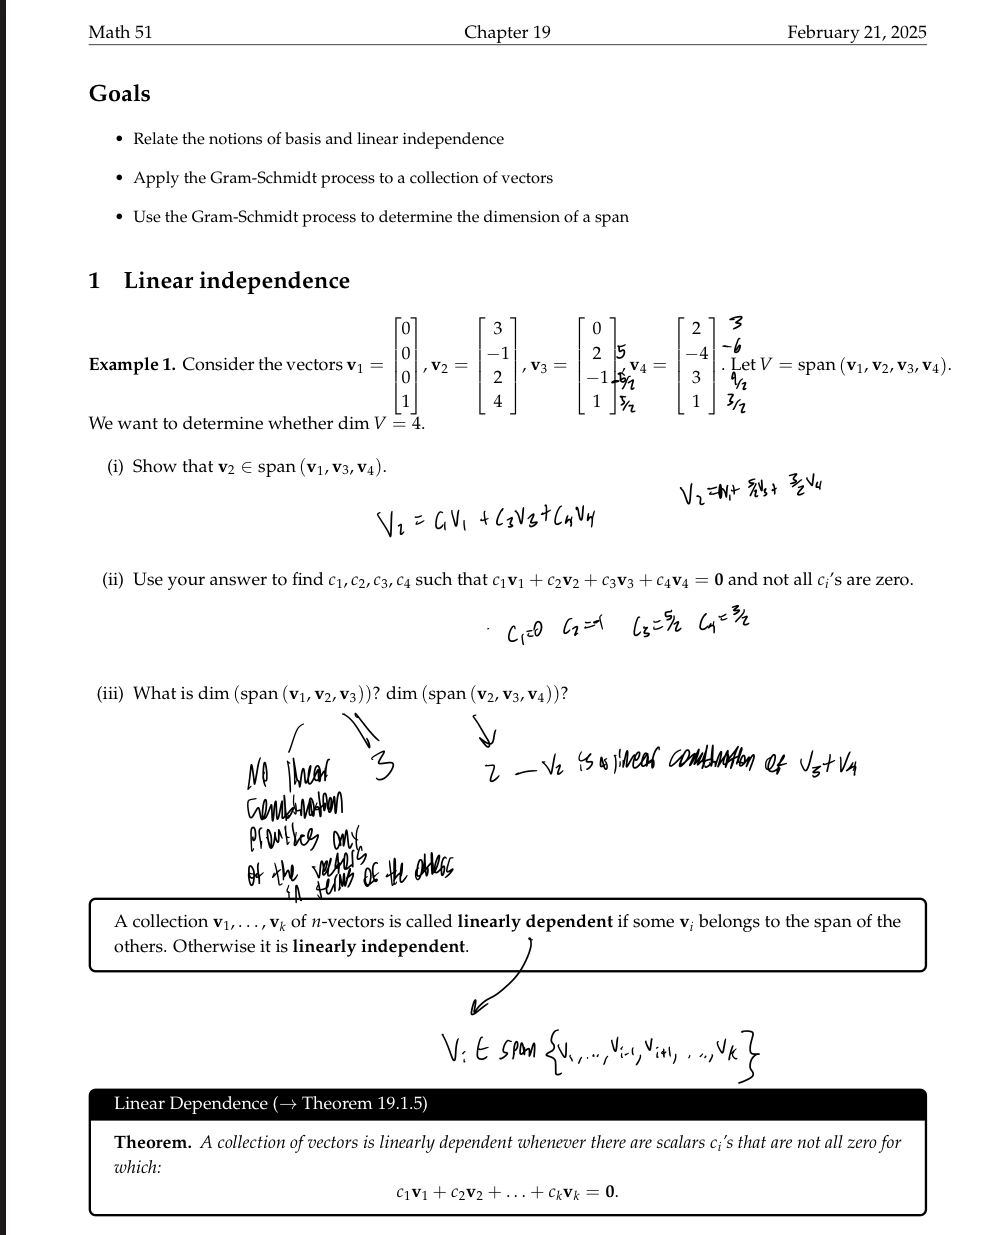 Math 51 Chapter 19 February 21, 2025
Goals
• Relate the notions of basis and linear independence
• Apply the Gram-Schmidt process to a collection of vectors
• Use the Gram-Schmidt process to determine the dimension of a span
1 Linear independence
Example 1. Consider the vectors v₁ = [0 0 0 1], v₂ = [3 −1 2 4], v₃ = [0 2 −1 1], v₄ = [2 −4 3 1]. Let V = span (v₁, v₂, v₃, v₄).
5 -5/2 5/2
3 -6 9/2 3/2
We want to determine whether dim V = 4.
(i) Show that v₂ ∈ span (v₁, v₃, v₄).
5/2V₃ + 3/2V₄
V₂ = C₁V₁ + C₃V₃ + C₄V₄
(ii) Use your answer to find c₁, c₂, c₃, c₄ such that c₁v₁ + c₂v₂ + c₃v₃ + c₄v₄ = 0 and not all cᵢ's are zero.
C₁=0 C₂=-1 C₃=5/2 C₄=3/2
(iii) What is dim (span (v₁, v₂, v₃))? dim (span (v₂, v₃, v₄))?
3
2 – V₂ is a linear combination of V₃ + V₄
No linear
combination
provides any
of the vectors
in terms of the others
A collection v₁, . . . , vₖ of n-vectors is called linearly dependent if some vᵢ belongs to the span of the
others. Otherwise it is linearly independent.
Vᵢ ∈ span {V₁, ..., Vᵢ₋₁, Vᵢ₊₁, ..., Vₖ}
Linear Dependence (→ Theorem 19.1.5)
Theorem. A collection of vectors is linearly dependent whenever there are scalars cᵢ's that are not all zero for
which:
c₁v₁ + c₂v₂ + . . . + cₖvₖ = 0.